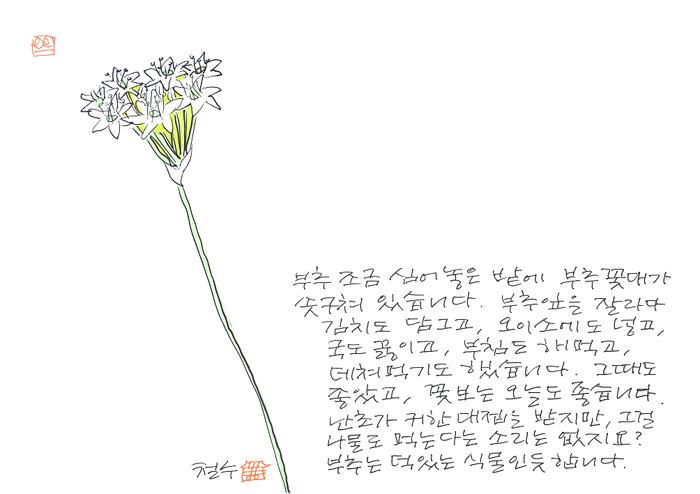 부추 조금 심어놓은 밭에 부추꽃대가
솟구쳐 있습니다. 부추잎을 잘라다
김치도 담그고, 오이소에도 넣고,
국도 끓이고, 부침도 해먹고,
데쳐먹기도 했습니다. 그때도
좋았고, 꽃보는 오늘도 좋습니다.
난초가 귀한 대접을 받지만, 그걸
나물로 먹는다는 소리는 없지요?
부추는 덕있는 식물인듯합니다.
철수